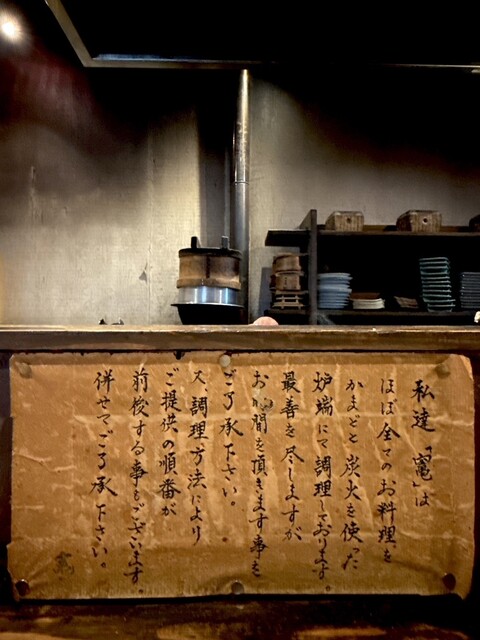 私達「竈」は
ほぼ全てのお料理を
かまどと炭火を使った
炉端にて調理しております
最善を尽しますが
お時間を頂きます事を
ご了承下さい。
又、調理方法により
ご提供の順番が
前後する事もございます。
併せてご了承下さい。
竈